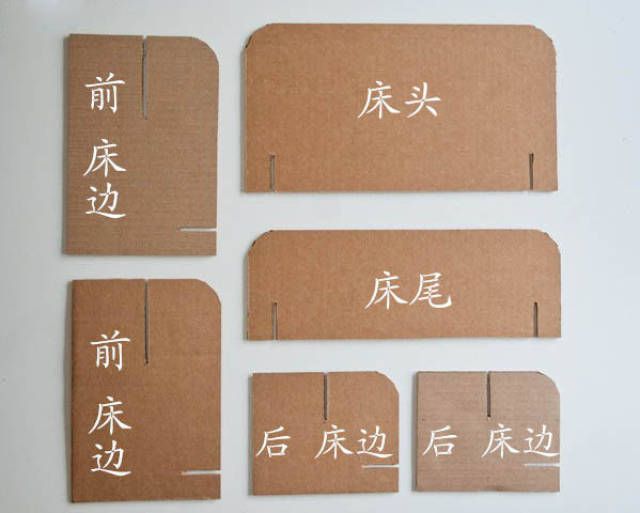 前
床
边
床头
前
床
边
床尾
后 床边
后 床边